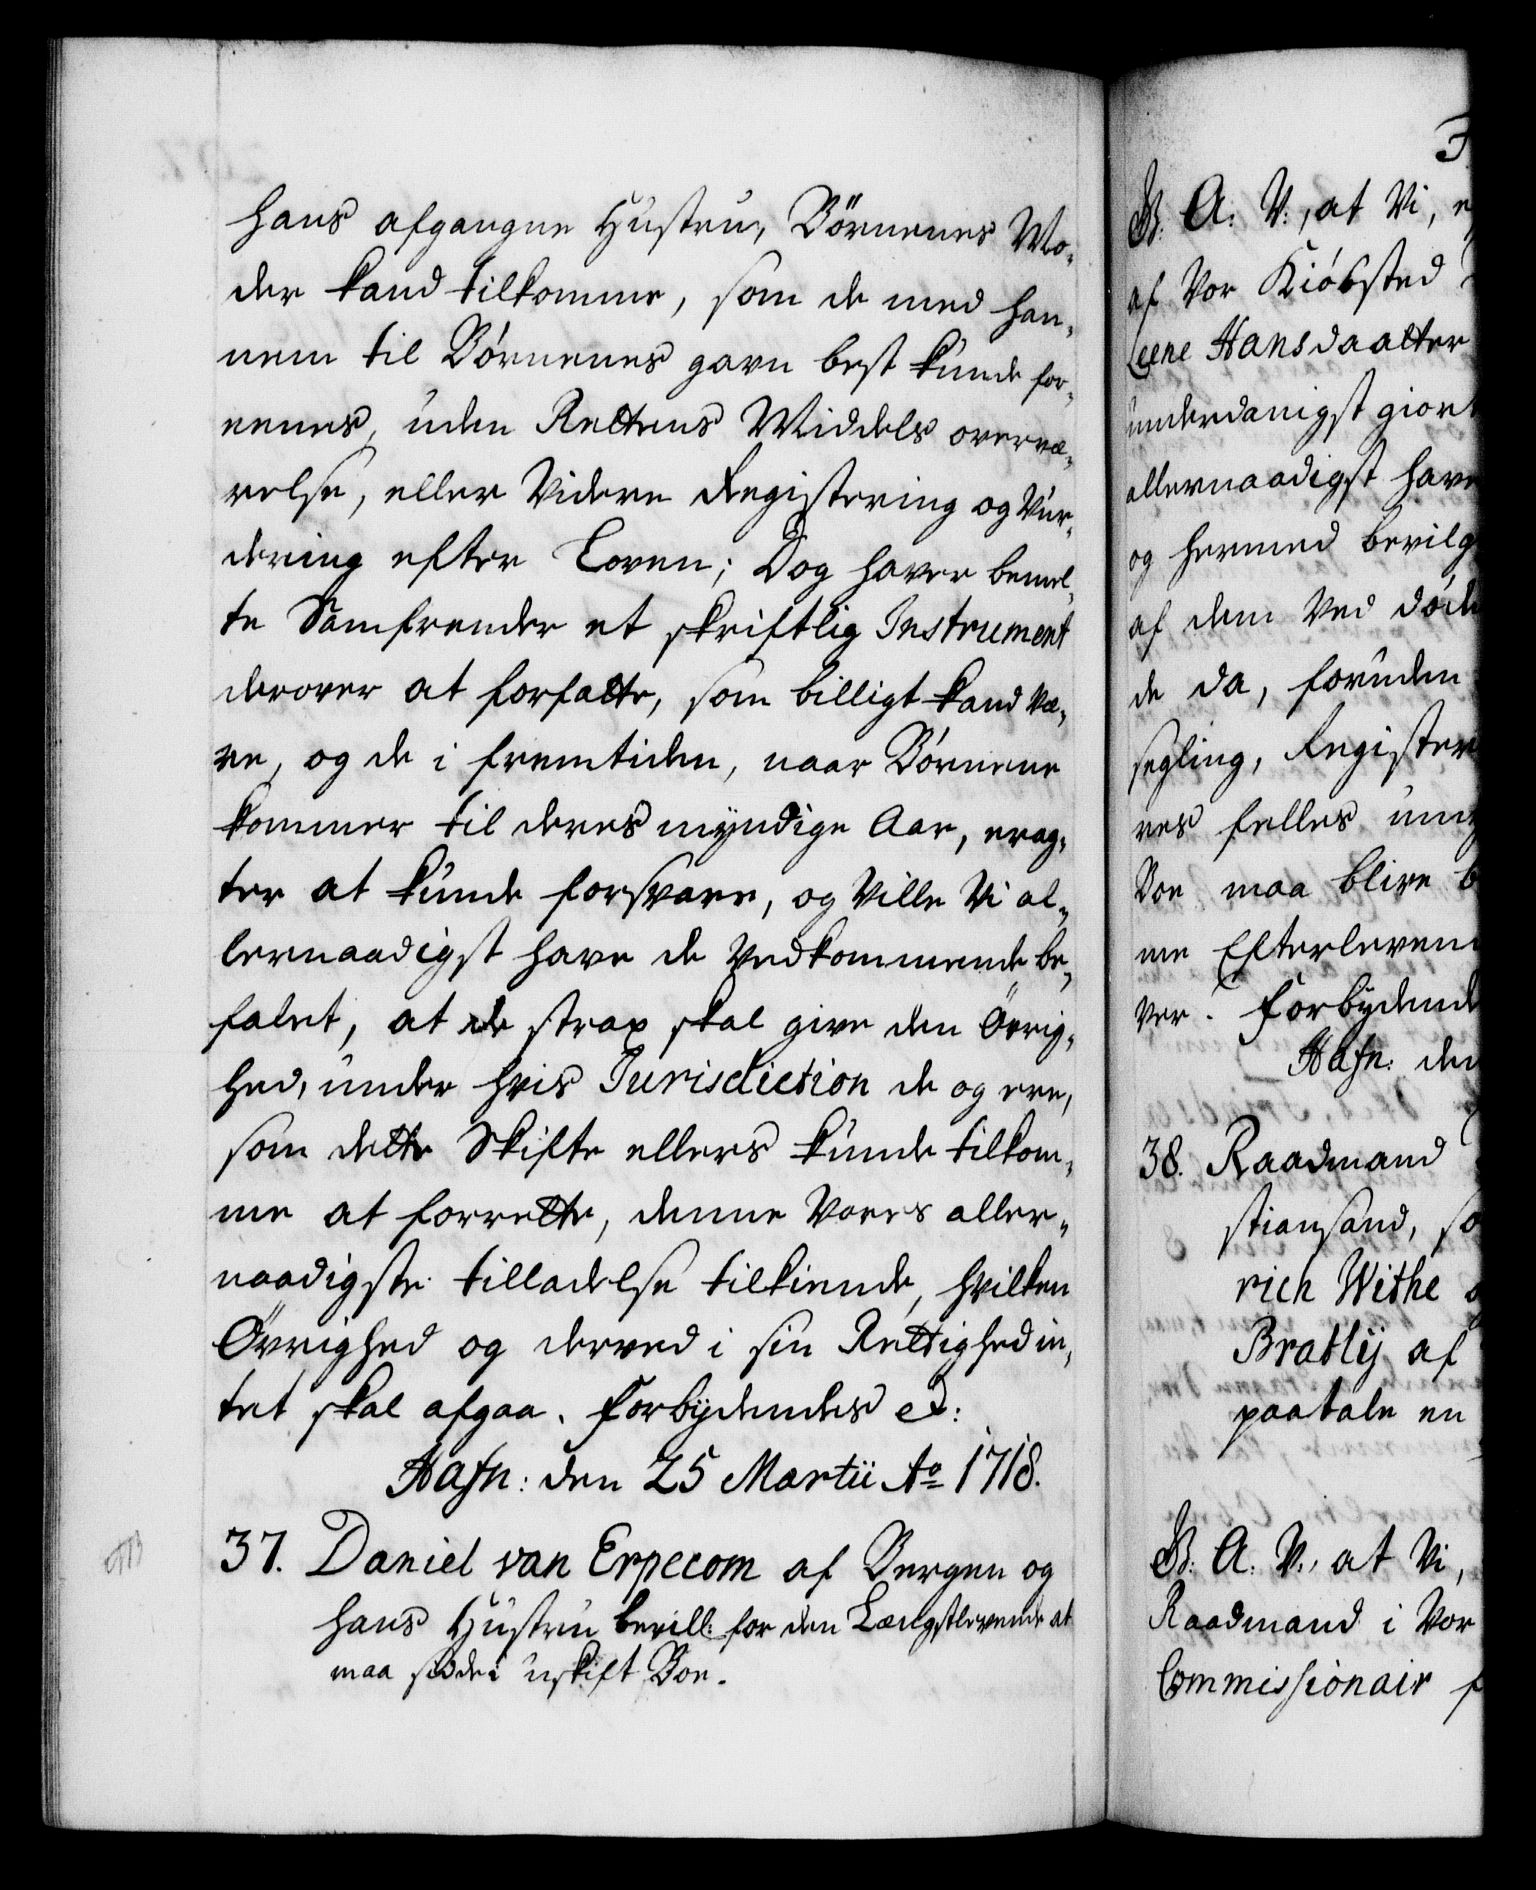 hans afgangne Hustru, Börnenes Mo-
der kand tilkomme, som de med han-
nem til Börnenes gavn best kunde for-
eenes, uden Rettens Middels overvæ-
relse, eller Videre Registering og Vur-
dering efter Loven; Dog haver bemel-
te Samfrender et skriftlig Instrument
derover at forfatte, som billigt kand væ-
re, og de i fremtiden, naar Börnene
kommer til deres myndige Aar, erag-
ter at kunde forsvare, og Ville Vi al-
lernaadigst have de Vedkommende be-
falet, at de strax skal give den Övrig-
hed, under hvis Jurisdiction de og ere,
som dette Skifte ellers kunde tilkom-
me at forrette, denne Vores aller-
naadigste tilladelse tilkiende, hvilken
Övrighed og derved i sin Rettighed in-
tet skal afgaa. Forbydendes etc:
Hafn: den 25 Martii Ao 1718.
37. Daniel van Erpecom af Bergen og
hans Hustru bevill: for den Længstlevende at
maa sidde i uskift Boe.
G. A. V., at Vi, e
af Vor Kiöbsted
Leene Hansdaatter
underdanigst giort
allernaadigst have
og hermed bevilg
af dem Ved döde
de da, foruden
segling, Register
res felles um
Boe maa blive b
me Efterleven
ver. Forbydend
Hafn: den
38. Raadmand
stiansand, so
rich Withe
Bratlij af
paatale en
G. A. V., at Vi,
Raadmand i Vor
Commissionair f